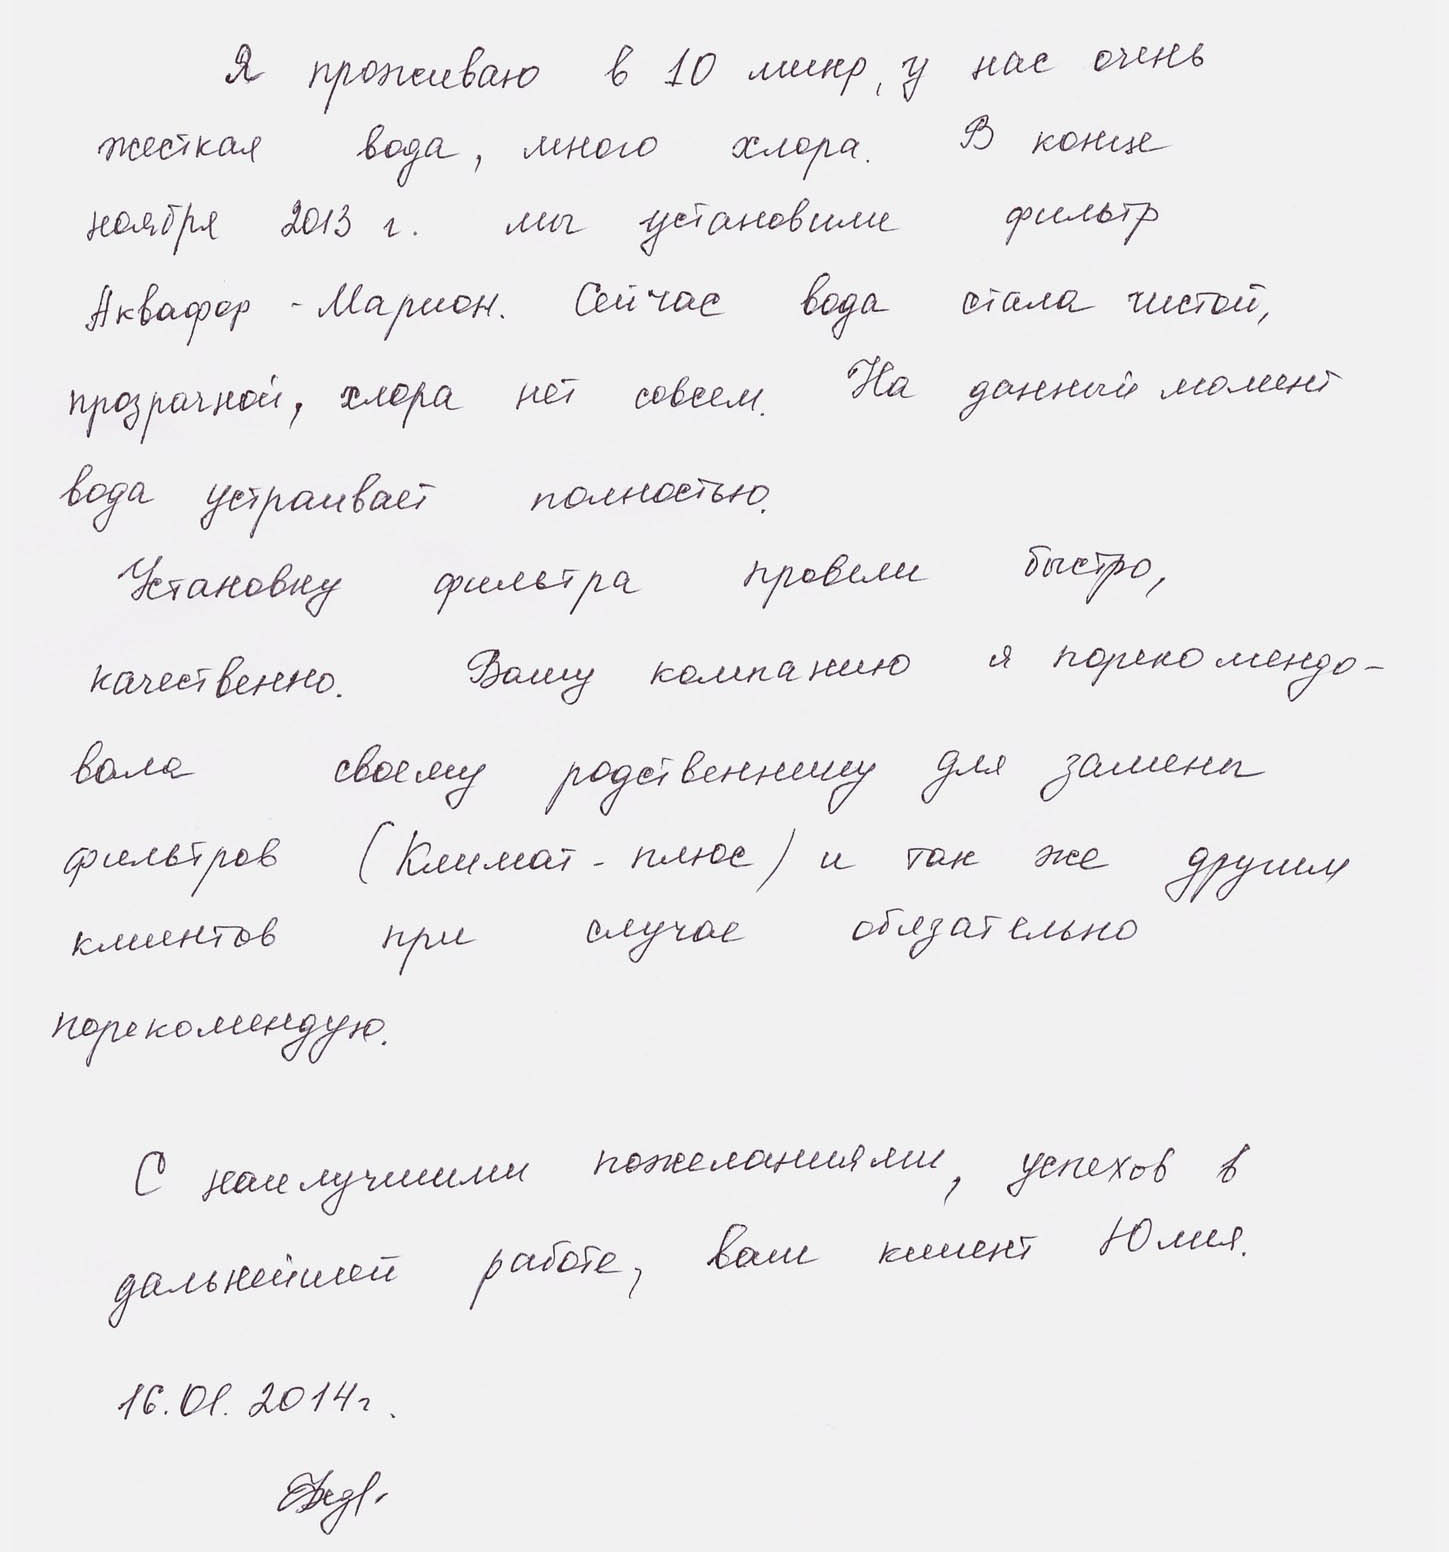 Я проживаю в 10 микр, у нас очень
жесткая вода, много хлора. В конце
ноября 2013 г. мы установили фильтр
Аквафор - Марион. Сейчас вода стала чистой,
прозрачной, хлора нет совсем. На данный момент
вода устраивает полностью.
Установку фильтра провели быстро,
качественно. Вашу компанию я порекомендо-
вала своему родственнику для замены
фильтров (Климат - плюс) и так же другим
клиентов при случае обязательно
порекомендую.
С наилучшими пожеланиями, успехов в
дальнейшей работе, ваш клиент Юлия.
16.01.2014г.